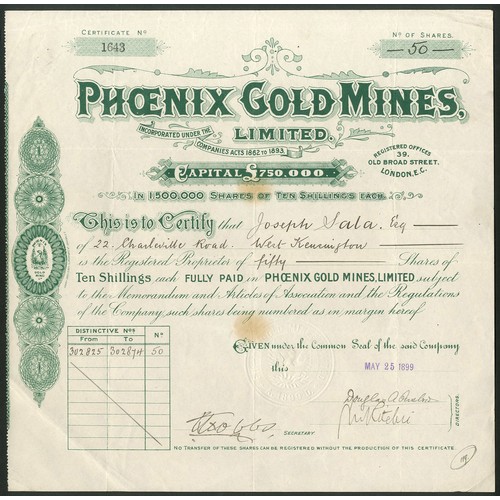 CERTIFICATE Nº
1643
Nº OF SHARES.
50
PHŒNIX GOLD MINES,
LIMITED.
INCORPORATED UNDER THE
COMPANIES ACTS 1862 TO 1893.
REGISTERED OFFICES
39,
OLD BROAD STREET.
LONDON. E.C.
CAPITAL £750,000.
IN 1,500,000 SHARES OF TEN SHILLINGS EACH.
This is to Certify that Joseph Sala. Esq
of 22. Charleville Road. West Kensington
is the Registered Proprietor of fifty Shares of
Ten Shillings each FULLY PAID in PHŒNIX GOLD MINES, LIMITED subject
to the Memorandum and Articles of Association and the Regulations
of the Company, such shares being numbered as in margin hereof.
DISTINCTIVE Nos.
Nº
From To
302825 302874 50
GIVEN under the Common Seal of the said Company
this MAY 25 1899
DIRECTORS.
SECRETARY
NO TRANSFER OF THESE SHARES CAN BE REGISTERED WITHOUT THE PRODUCTION OF THIS CERTIFICATE.